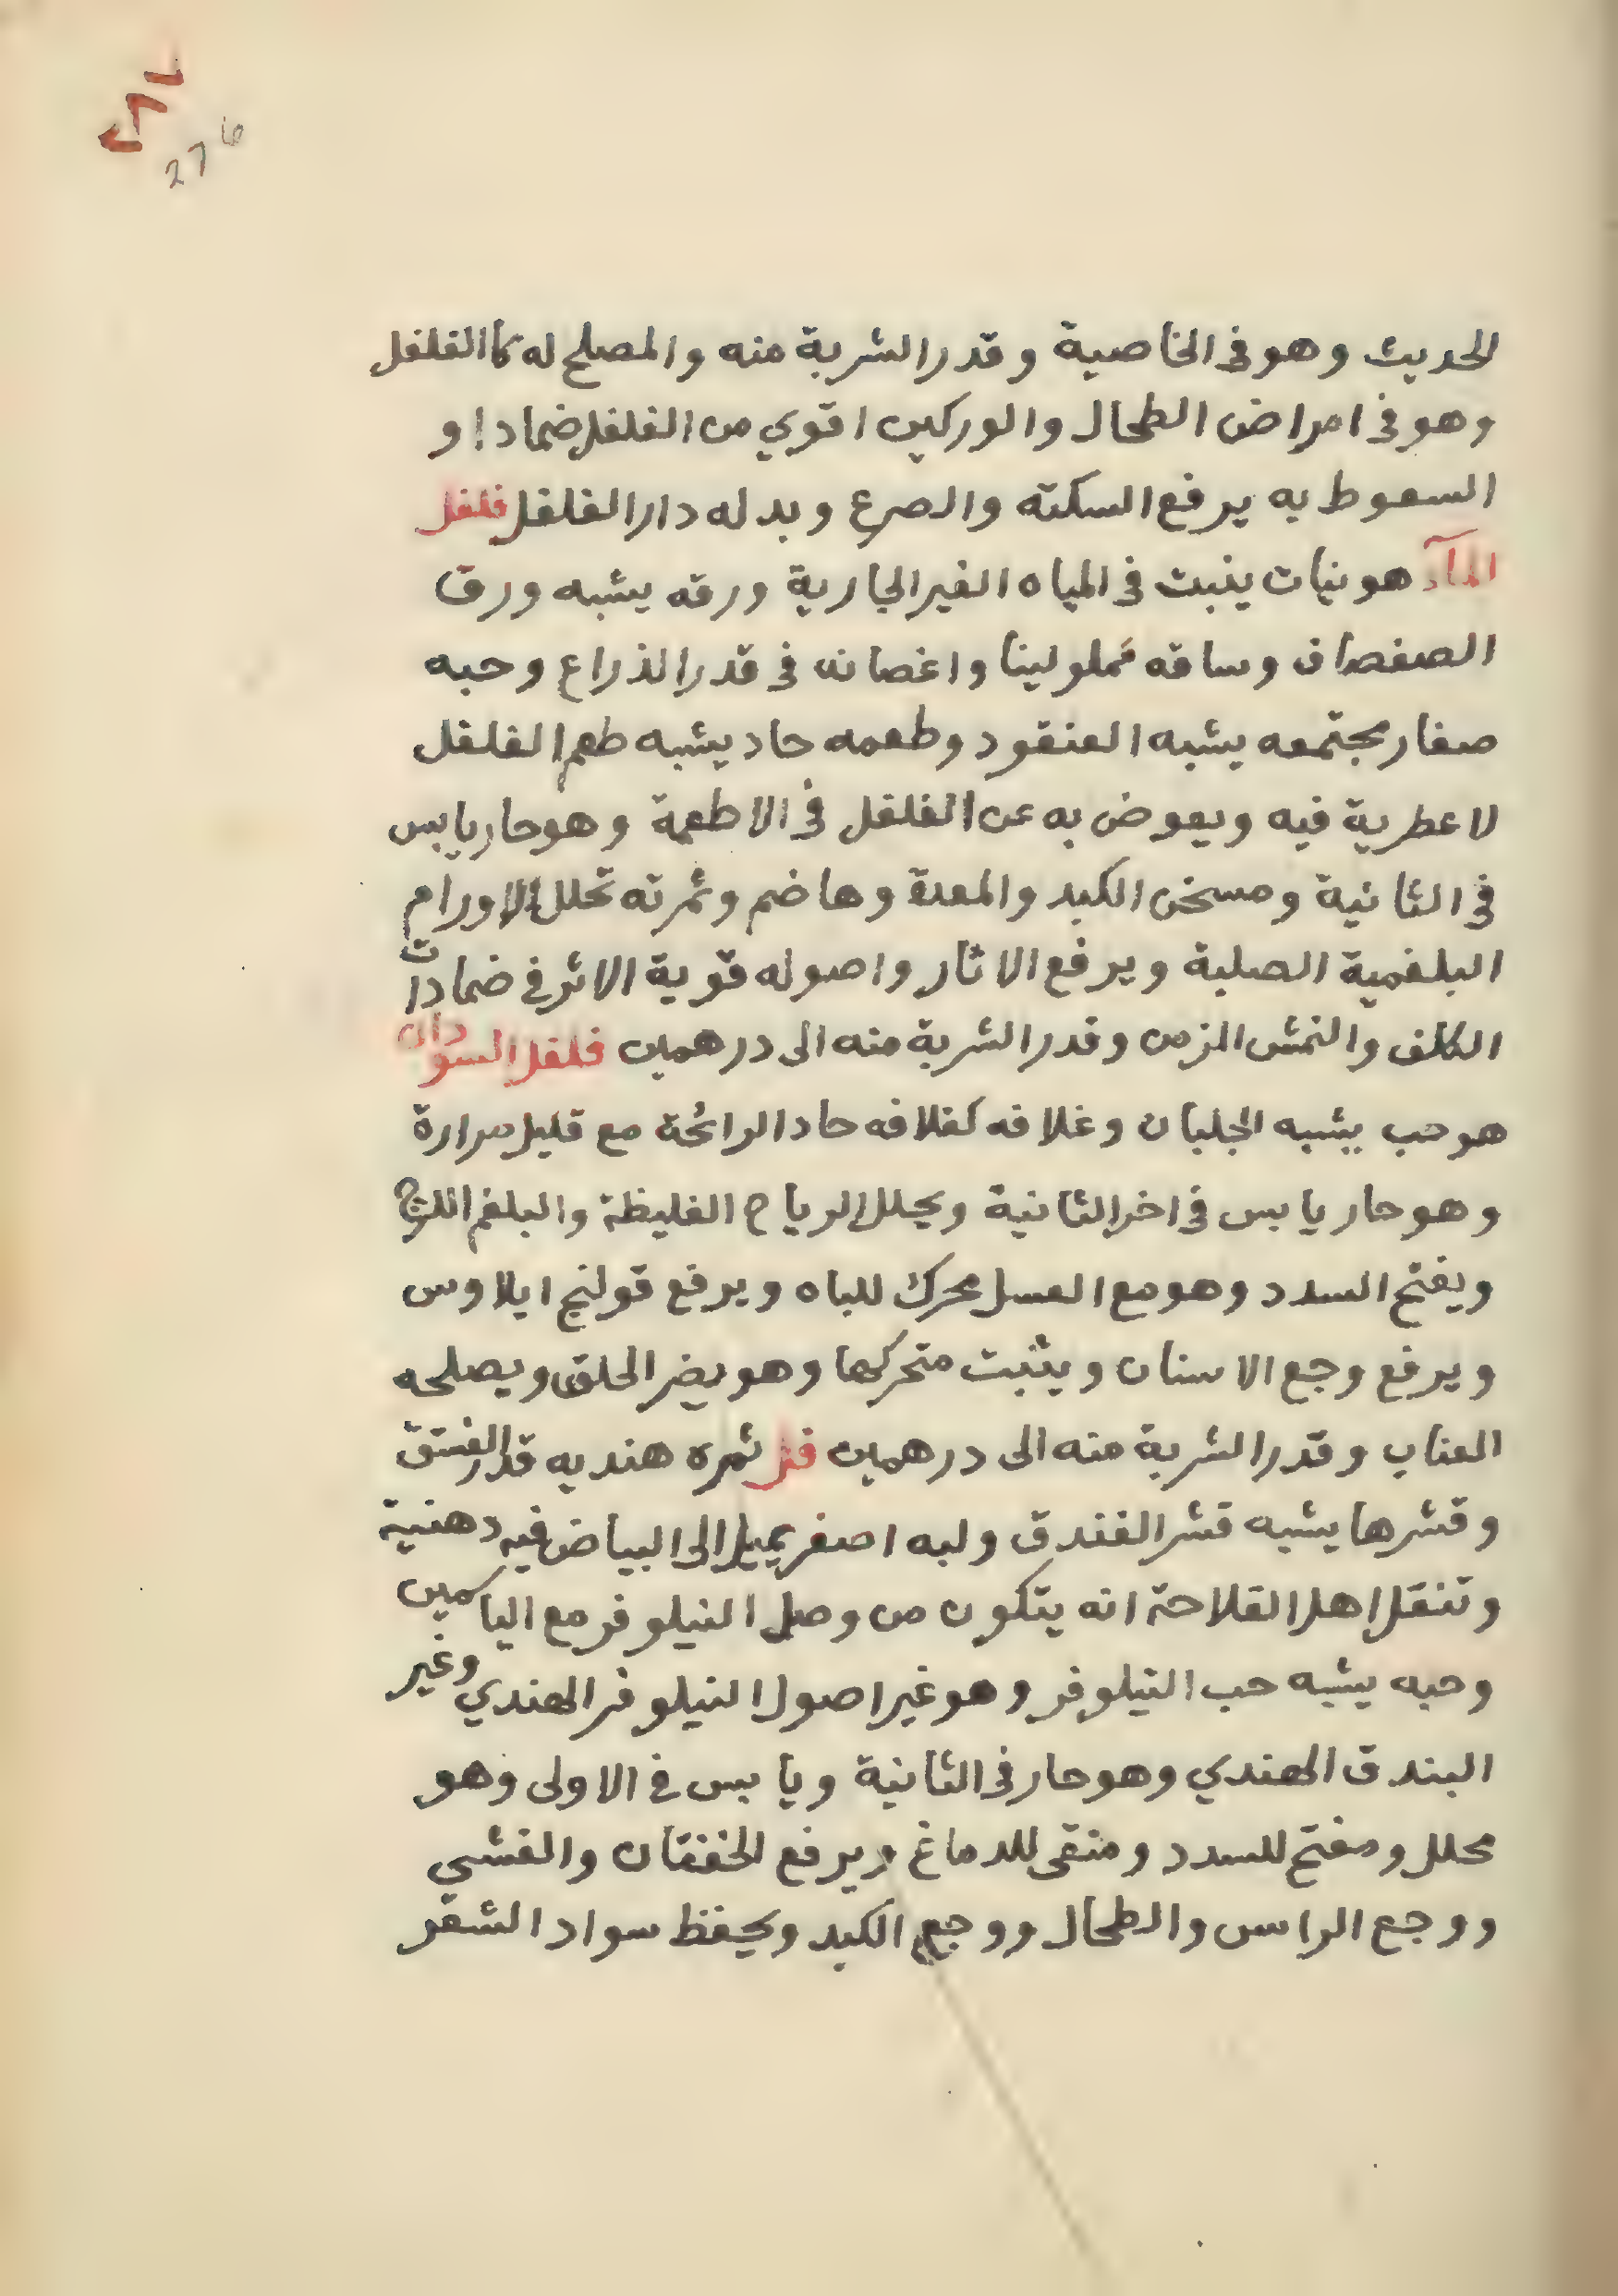 ٢٨٦
276
الحديث وهو في الخاصية وقدر الشربة منه والمصلح له كالفلفل
وهو في امراض الطحال والوركين اقوي من الفلفل ضمادا و
السعوط به يرفع السكته والصرع وبدله دار الفلفل فلفل
المآء هو نبات ينبت في المياه الغير الجارية ورقه يشبه ورق
الصفصاف وساقه مملو لينا واغصانه في قدر الذراع وحبه
صغار مجتمعه يشبه العنقود وطعمه حاد يشبه طعم الفلفل
لا عطرية فيه ويعوض به عن الفلفل في الاطعمة وهو حار يابس
في الثانية ومسخن الكبد والمعدة وهاضم وثمرته تحلل الاورام
البلغمية الصلبة ويرفع الاثار واصوله قوية الاثر في ضمادات
الكلف والنمش المزمن وقدر الشربة منه الى درهمين فلفل السودان
هو حب يشبه الجلبان وغلافه كغلافه حاد الرائحة مع قليل مرارة
وهو حار يابس في اخر الثانية ويحلل الرياح الغليظة والبلغم اللزج
ويفتح السدد وهو مع العسل محرك للباه ويرفع قولنج ايلاوس
ويرفع وجع الاسنان ويثبت متحركها وهو يضر الحلق ويصلحه
العناب وقدر الشربة منه الى درهمين فل ثمره هنديه قدر الفستق
وقشرها يشبه قشر الفندق ولبه اصفر يميل الى البياض فيه دهنية
وتنقل اهل الفلاحة انه يتكون من وصل النيلوفر مع الياسمين
وحبه يشبه حب النيلوفر وهو غير اصول النيلوفر الهندي وغير
البندق الهندي وهو حار في الثانية ويابس في الاولى وهو
محلل ومفتح للسدد ومنقى للدماغ ويرفع الخفقان والغشي
ووجع الراس والطحال ووجع الكبد ويحفظ سواد الشعر